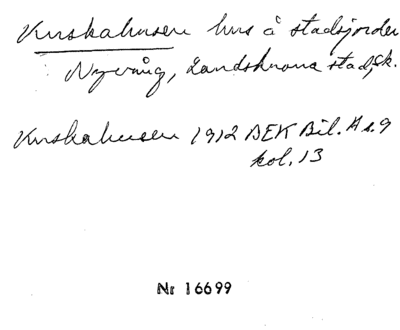 Kurskahusen hus å stadsjorden
Nyvång, Landskrona stad, Sk.
Kurskahusen 1912 BEK Bil. A s. 9
kol. 13
Nr 16699